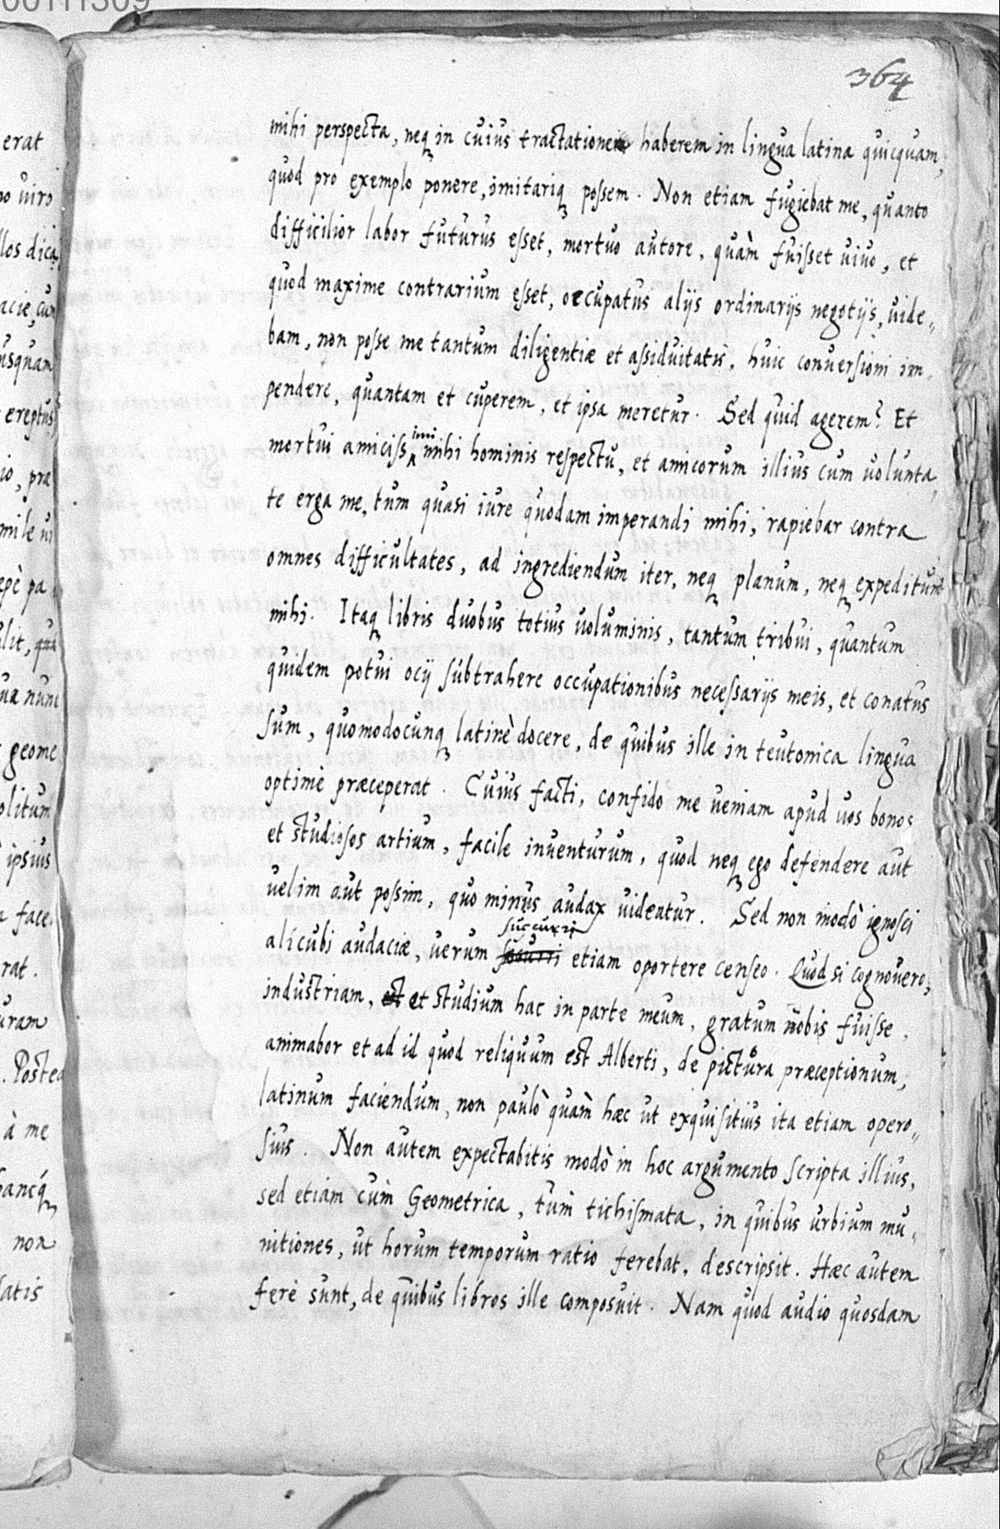 00111309
364
mihi perspecta, neq in cuius tractatione haberem in lingua latina quicquam,
quod pro exemplo ponere, imitariq possem. Non etiam fugiebat me, quanto
difficilior labor futurus esset, mortuo autore, quàm fuisset uiuo, et
quod maxime contrarium esset, occupatus alijs ordinarijs negotijs, uide„
bam, non posse me tantum diligentiæ et assiduitatis, huic conuersioni im„
pendere, quantam et cuperem, et ipsa meretur. Sed quid agerem? Et
mortui amicissimi mihi hominis respectu, et amicorum illius cum uolunta„
te erga me, tum quasi iure quodam imperandi mihi, rapiebar contra
omnes difficultates, ad ingrediendum iter, neq planum, neq expeditum
mihi. Itaq libris duobus totius uoluminis, tantum tribui, quantum
quidem potui ocij subtrahere occupationibus necessarijs meis, et conatus
sum, quomodocunq latinè docere, de quibus ille in teutonica lingua
optime præceperat. Cuius facti, confido me ueniam apud uos bonos
et studiosos artium, facile inuenturum, quod neq ego defendere aut
uelim aut possim, quo minus audax uideatur. Sed non modò ignosci
alicubi audaciæ, uerum succurri etiam oportere censeo. Quod si cognouero,
industriam, et studium hac in parte meum, gratum uobis fuisse,
animabor et ad id quod reliquum est Alberti, de pictura præceptionum,
latinum faciendum, non paulò quàm hæc ut exquisitius ita etiam opero„
sius. Non autem expectabitis modò in hoc argumento scripta illius,
sed etiam cùm Geometrica, tùm tichismata, in quibus urbium mu„
nitiones, ut horum temporum ratio ferebat, descripsit. Hæc autem
ferè sunt, de quibus libros ille composuit. Nam quod audio quosdam